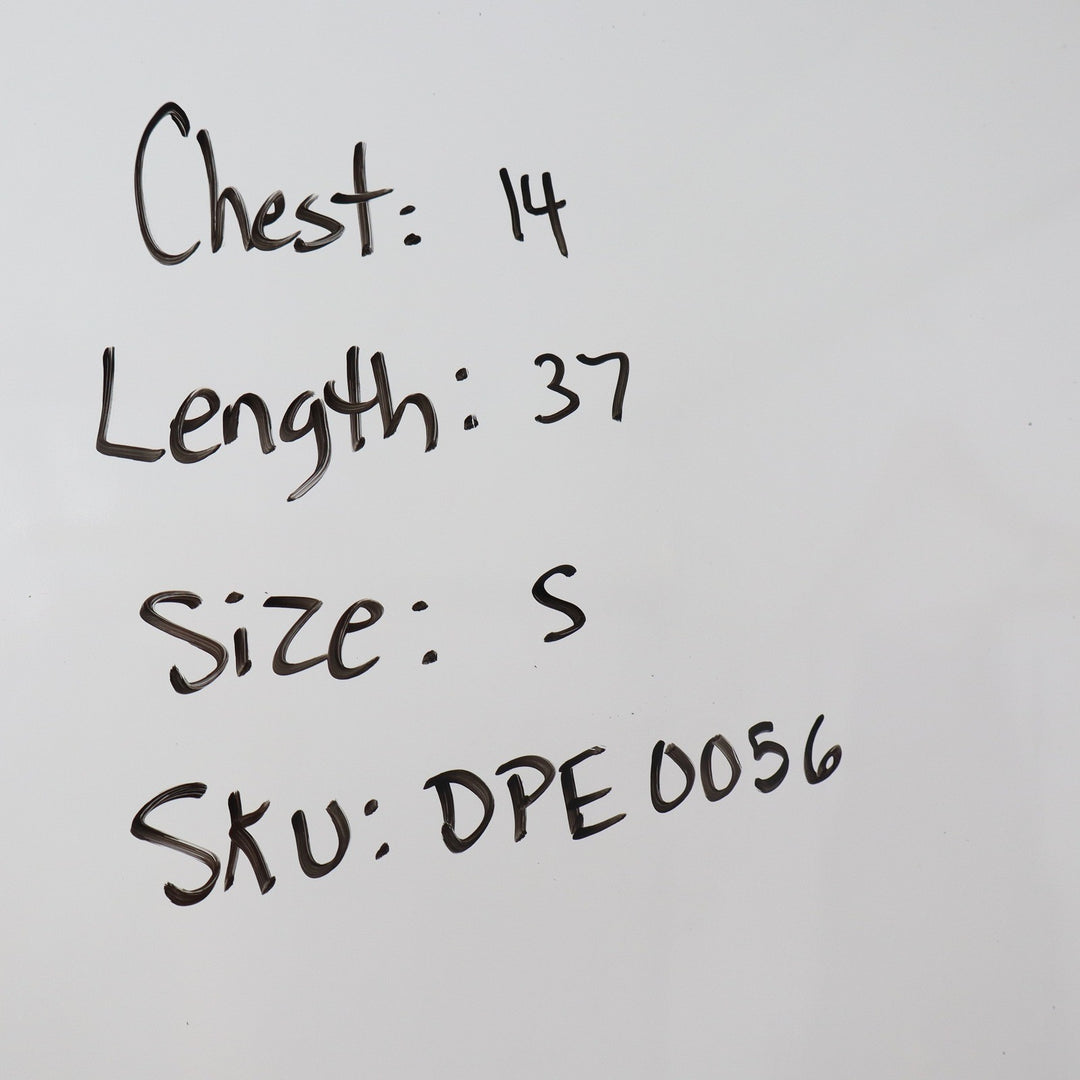 Chest: 14
Length: 37
Size: S
Sku: DPE 0056